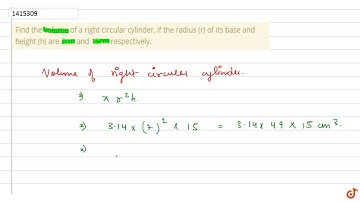 1415309
Find the volume of a right circular cylinder, if the radius (r) of its base and
height (h) are 7cm and 15cm respectively.
Volume of right circular cylinder.
⇒) π r²h.
⇒) 3.14 × (7)² × 15 = 3.14 × 49 × 15 cm³.
⇒)